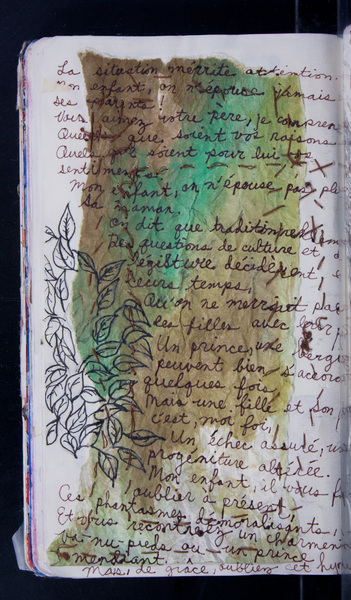 La situation mérite attention.
Mon enfant, on n'épouse jamais
ses parents!
Vous aimez votre père, je comprens
Quelles que soient vos raisons
Quels que soient pour lui vos
sentiments
Mon enfant, on n'épouse pas plus
sa maman.
On dit que traditionnellement
Des questions de culture et d
législature décidèrent, e
leurs temps,
Qu'on ne
des filles avec leur p
Un prince, une berger
peuvent bien s'accorder
quelques fois
Mais une fille et son pa
c'est, moi foi,
Un échec assuré, un
progéniture altérée.
Mon enfant, il vous fa
oublier à présent,
Ces phantasmes démoralisants,
Et vous rencontrez un charmenn
nu-pieds ou un prince
mendiant.
Mais, de grâce, oubliez cet hym